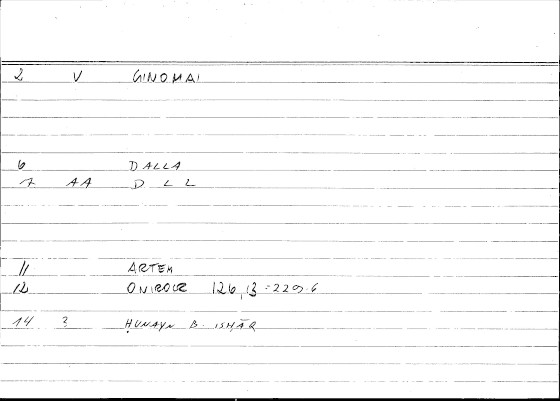 2 V GINOMAI
6 DALLA
7 AA D L L
11 ARTEM
12 ONIROCR 126,13 = 229.6
14 3 ḤUNAYN B. ISḤĀQ